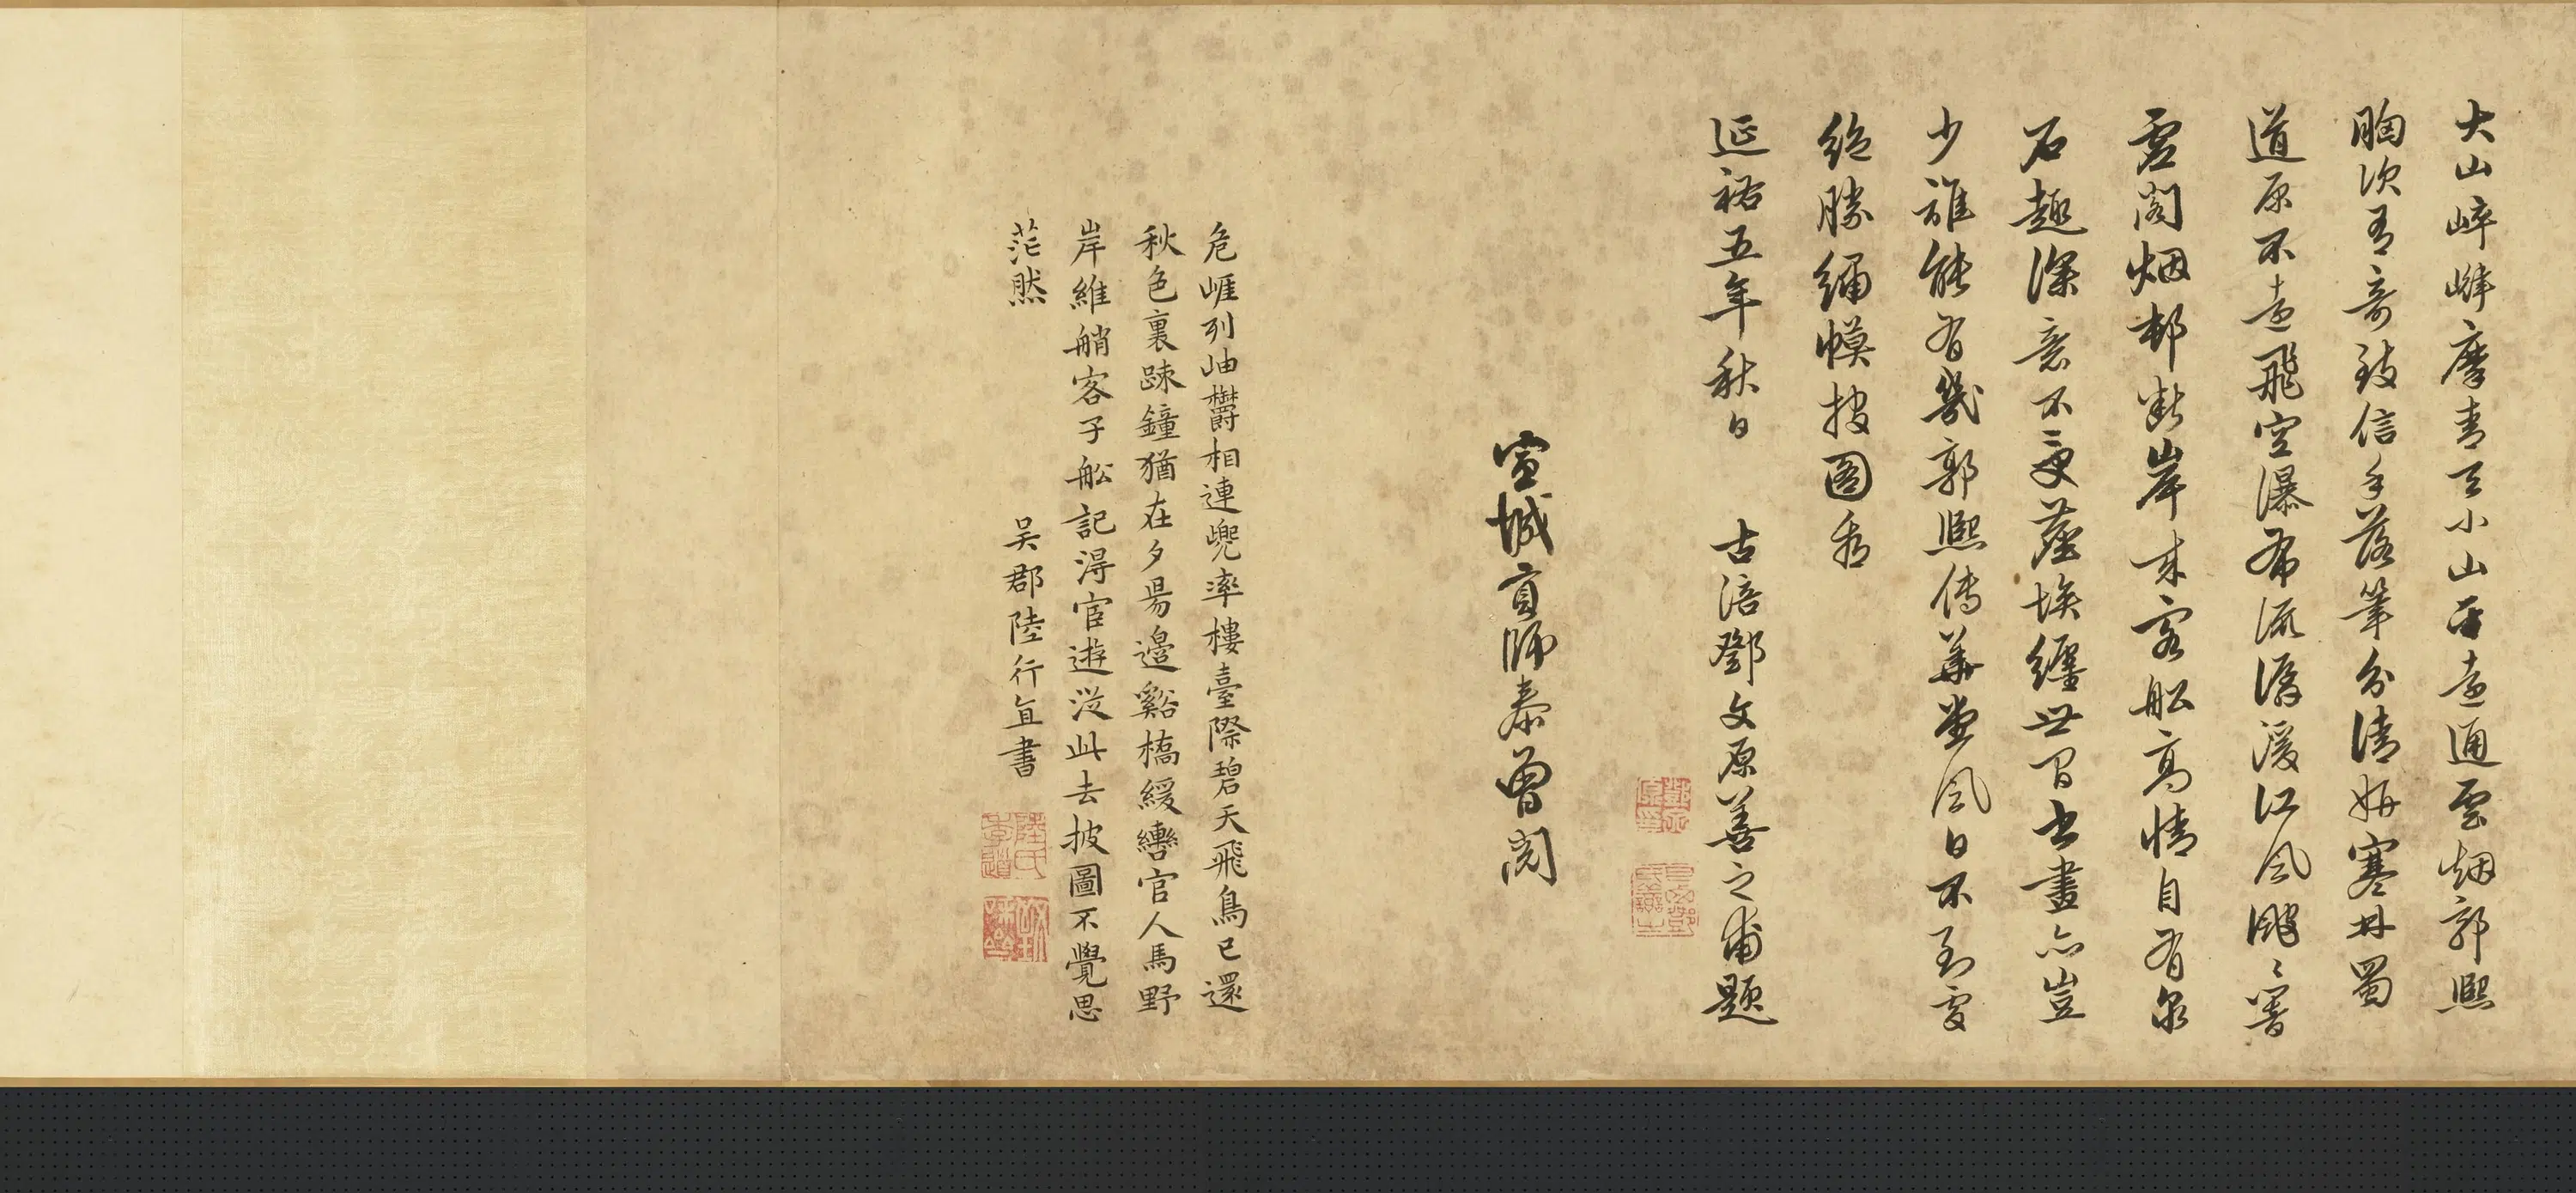 大山崪嵂摩青天小山平遠通雲烟郭熙
胸次有奇致信手落筆分清妍寒林蜀
道原不遠飛空瀑布流潺湲江風颼〻響
雲閣烟邨斷岸來客舩高情自有泉
石趣深意不受塵埃纏世間書畫亦豈
少誰能有幾郭熙傳華堂風日不到處
絶勝綃幙披圖看
延祐五年秋日 古涪鄧文原善之甫題
宣城貢師泰曽閱
危崕列岫欝相連兜率樓臺際碧天飛鳥已還
秋色裏踈鐘猶在夕昜邊谿橋緩轡官人馬野
岸維艄客子舩記淂宦遊從此去披圖不覺思
茫然 吴郡陸行直書